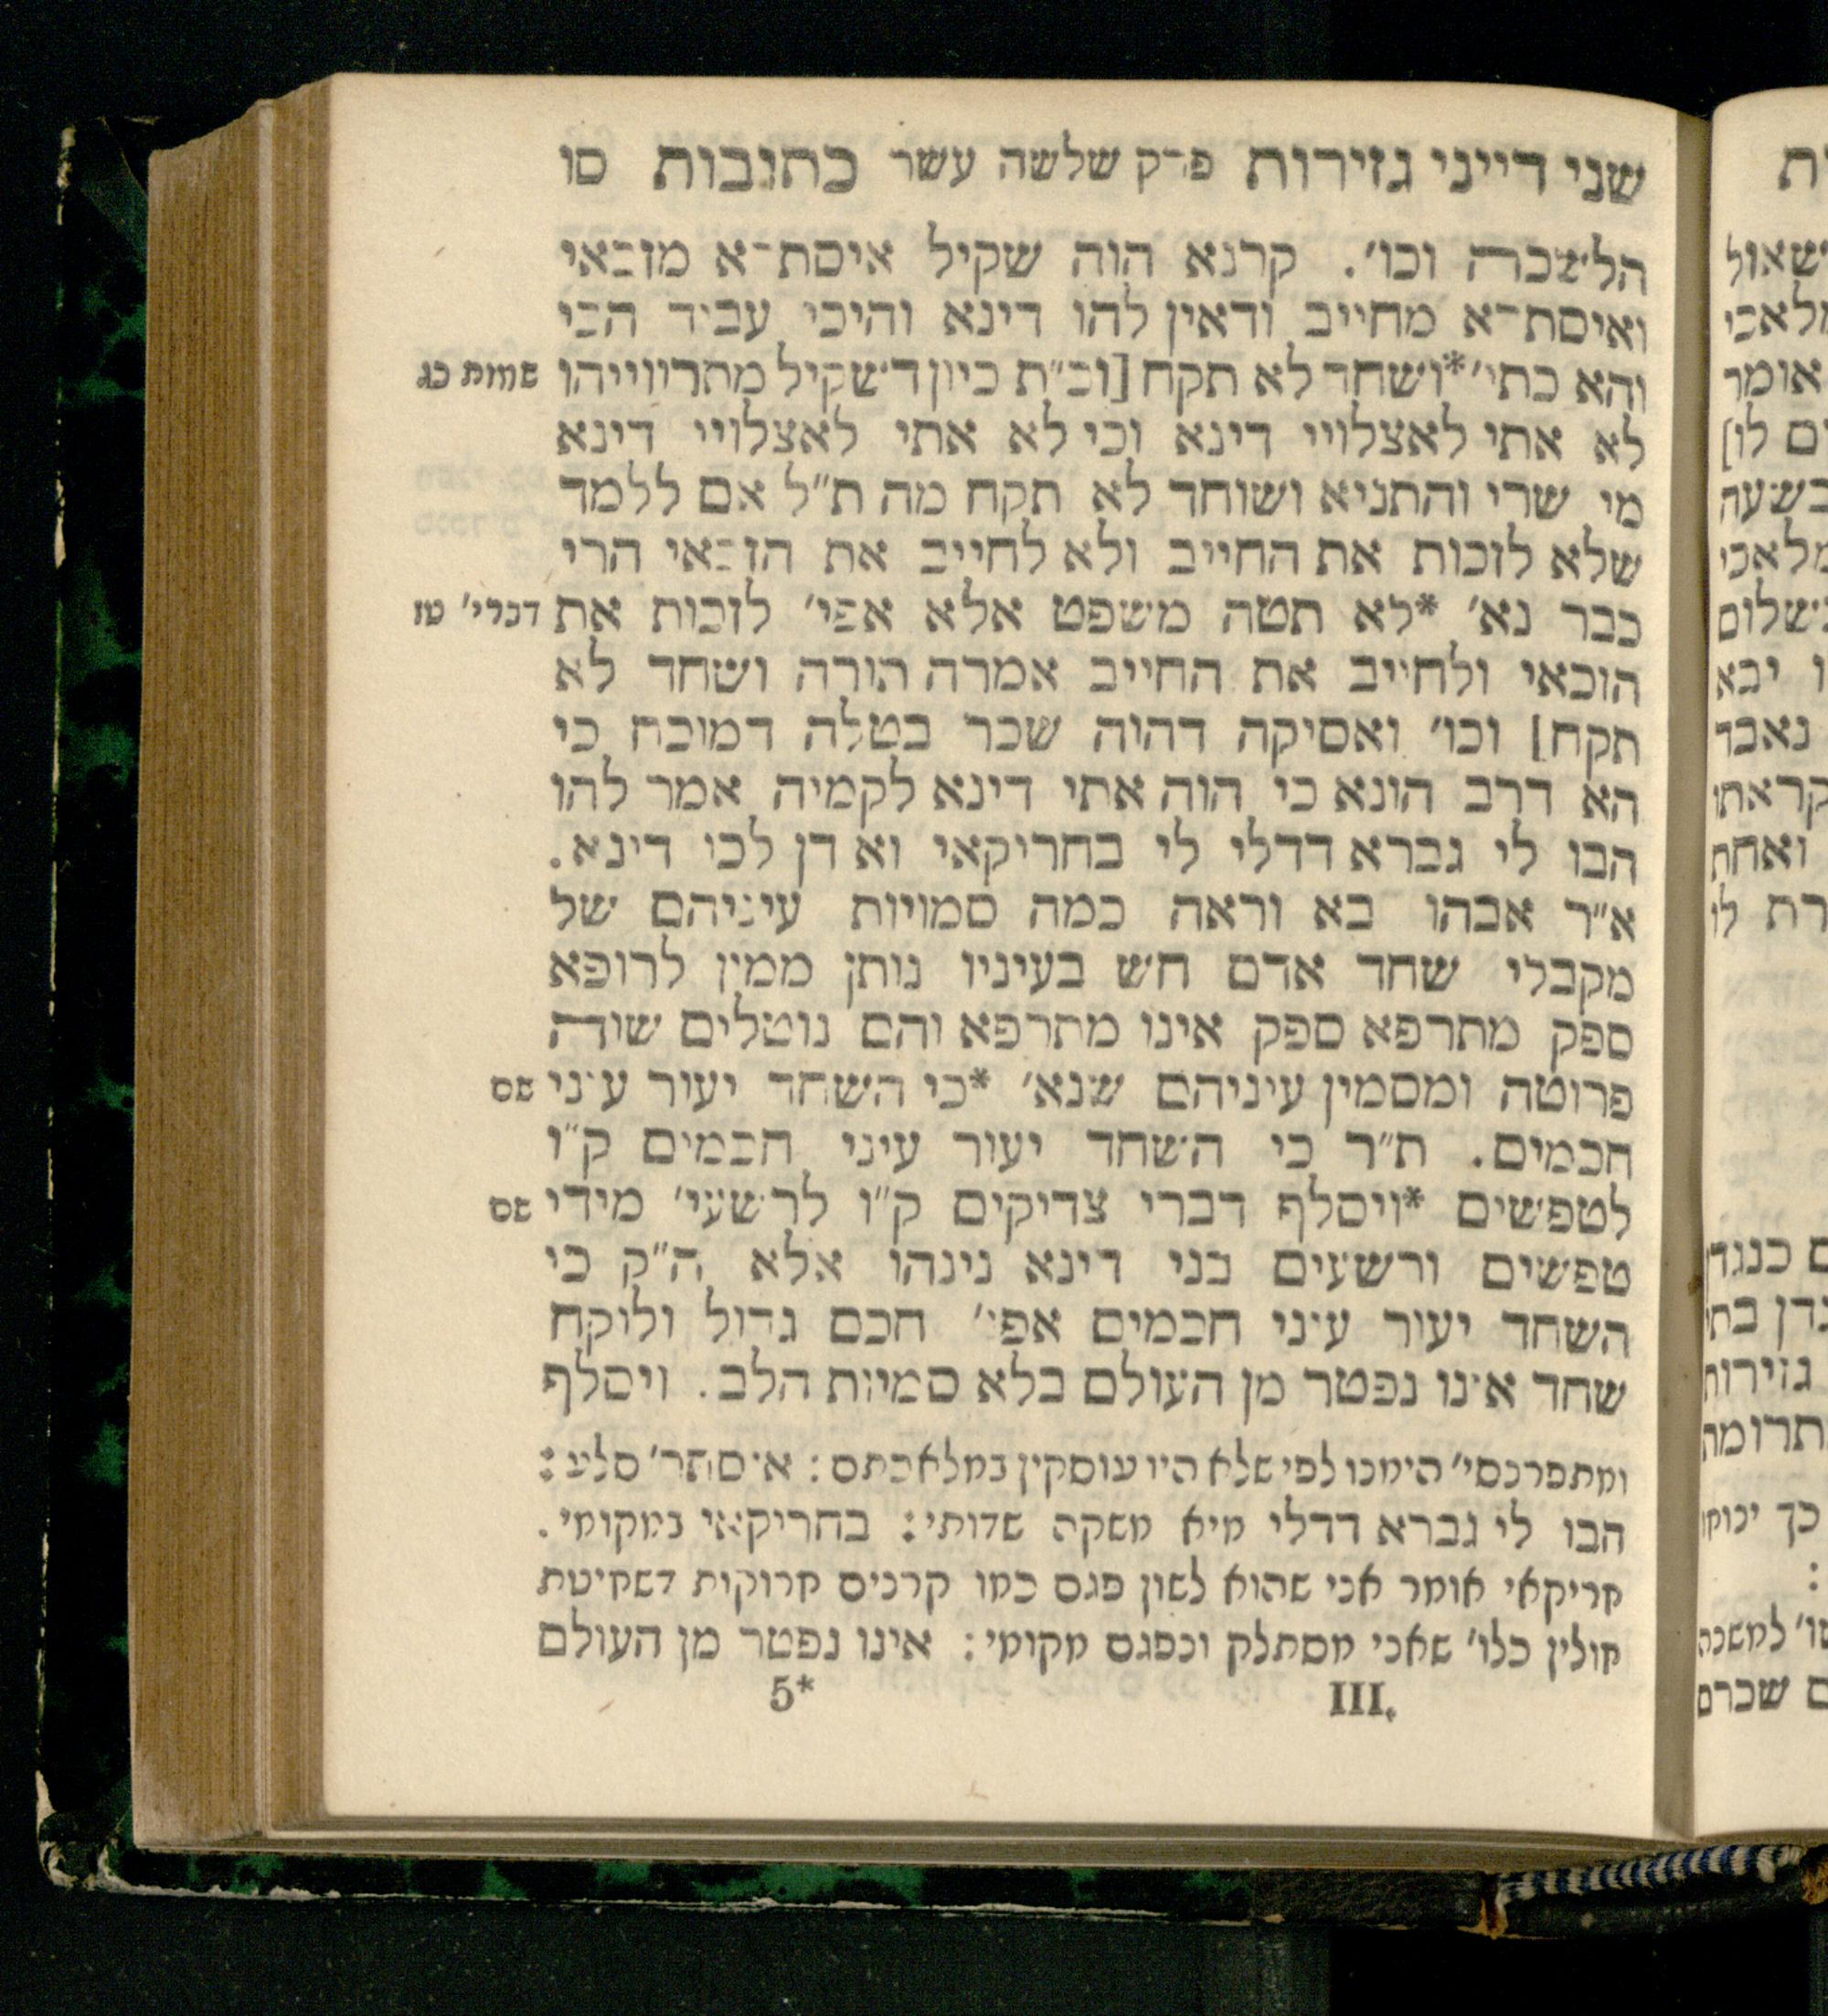 שני דייני גזירות פרק שלשה עשר כתובות סו
הלשכה וכו׳. קרנא הוה שקיל איסתרא מזכאי
ואיסתרא מחייב ודאין להו דינא והיכי עביד הכי
והא כתי׳ *ושחד לא תקח [וכ״ת כיון דשקיל מתרווייהו
שמות כג
לא אתי לאצלויי דינא וכי לא אתי לאצלויי דינא
מי שרי והתניא ושוחד לא תקח מה ת״ל אם ללמד
שלא לזכות את החייב ולא לחייב את הזכאי הרי
כבר נא׳ *לא תטה משפט אלא אפי׳ לזכות את
דברי׳ טז
הזכאי ולחייב את החייב אמרה תורה ושחד לא
תקח] וכו׳ ואסיקה דהוה שכר בטלה דמוכח כי
הא דרב הונא כי הוה אתי דינא לקמיה אמר להו
הבו לי גברא דדלי לי בחריקאי ואדון לכו דינא.
א״ר אבהו בא וראה כמה סמויות עיניהם של
מקבלי שחד אדם חש בעיניו נותן ממון לרופא
ספק מתרפא ספק אינו מתרפא והם נוטלים שוה
פרוטה ומסמין עיניהם שנא׳ *כי השחד יעור עיני
שם
חכמים. ת״ר כי השחד יעור עיני חכמים ק״ו
לטפשים *ויסלף דברי צדיקים ק״ו לרשעי׳ מידי
שם
טפשים ורשעים בני דינא נינהו אלא ה״ק כי
השחד יעור עיני חכמים אפי׳ חכם גדול ולוקח
שחד אינו נפטר מן העולם בלא סמיות הלב. ויסלף
ומתפרנסי׳ הימנו לפי שלא היו עוסקין במלאכתם: איסתר׳ סלע:
הבו לי גברא דדלי מיא משקה שדותי: בחריקאי במקומי.
חריקאי אומר אני שהוא לשון פגם כמו קרנים חרוקות דשחיטת
חולין כלו׳ שאני מסתלק ונפגם מקומי: אינו נפטר מן העולם
III. 5*
ית
ישאול
מלאכי
אומר
ום לו]
בשעה
מלאכי
בשלום
ו יבא
נאבד
קראתו
ואחת
רת לו
ם כנגדן
גזירות
תרומת
:
ם שכרם